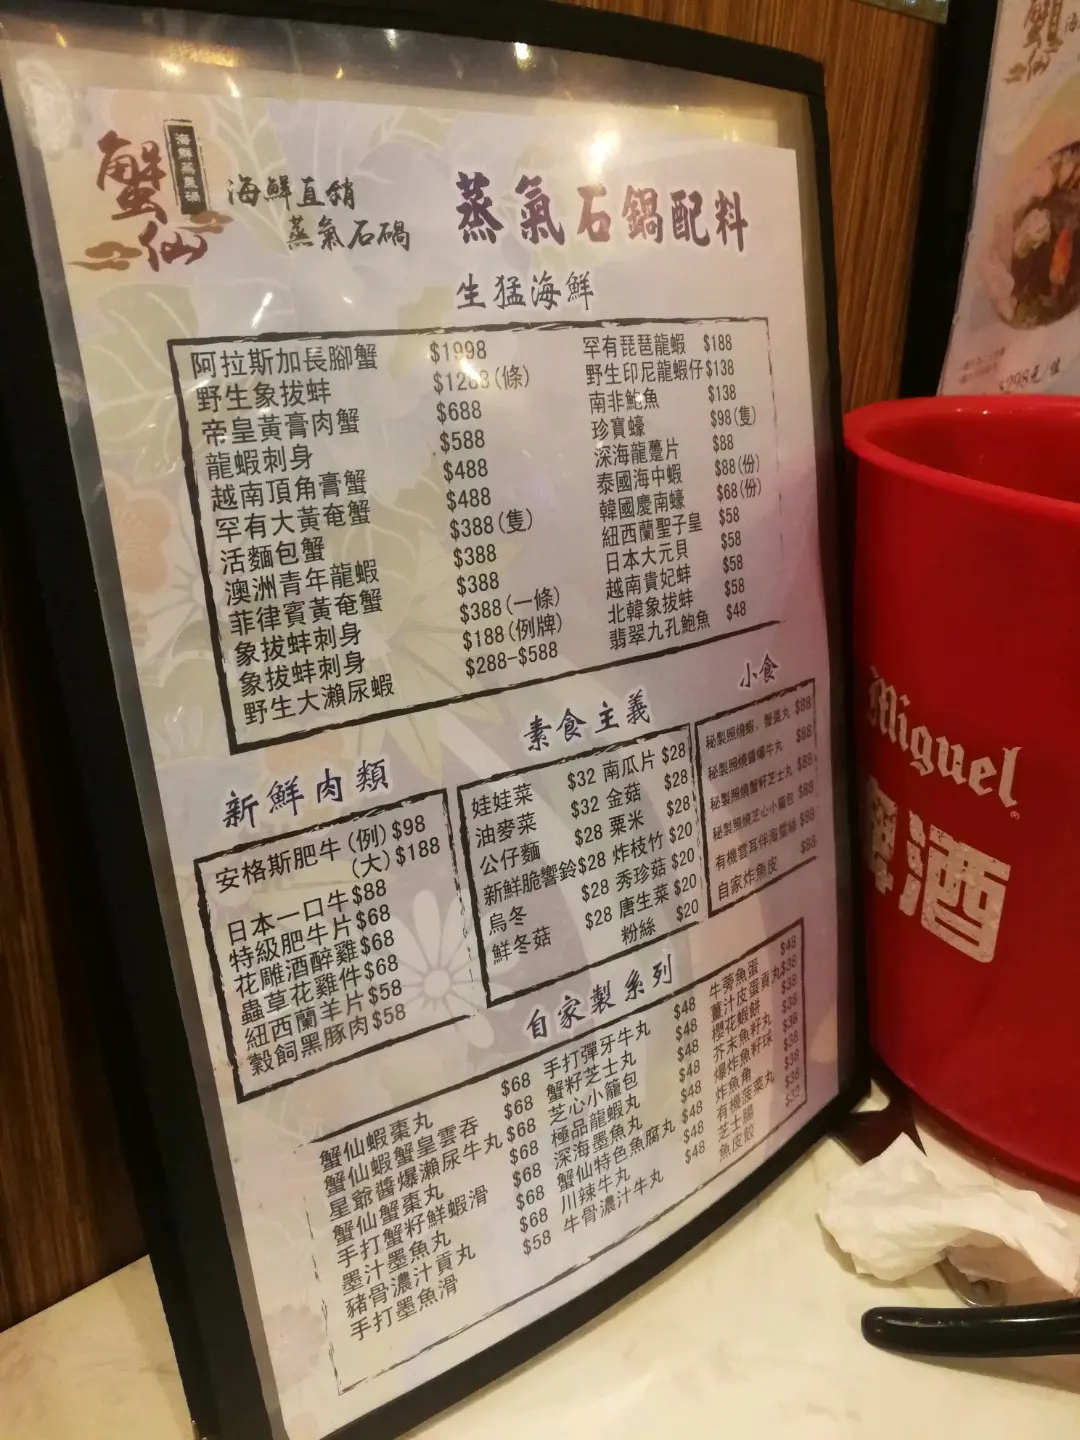 蟹仙
海鮮蒸氣石鍋
海鮮直銷
蒸氣石鍋
蒸氣石鍋配料
生猛海鮮
阿拉斯加長腳蟹 $1998
野生象拔蚌 $1288(條)
帝皇黃膏肉蟹 $688
龍蝦刺身 $588
越南頂角膏蟹 $488
罕有大黃奄蟹 $488
活麵包蟹 $388(隻)
澳洲青年龍蝦 $388
菲律賓黃奄蟹 $388
象拔蚌刺身 $388(一條)
象拔蚌刺身 $188(例牌)
野生大瀨尿蝦 $288-$588
罕有琵琶龍蝦 $188
野生印尼龍蝦仔 $138
南非鮑魚 $138
珍寶蠔 $98(隻)
深海龍躉片 $88
泰國海中蝦 $88(份)
韓國慶南蠔 $68(份)
紐西蘭聖子皇 $58
日本大元貝 $58
越南貴妃蚌 $58
北韓象拔蚌 $58
翡翠九孔鮑魚 $48
新鮮肉類
安格斯肥牛(例) $98
(大) $188
日本一口牛 $88
特級肥牛片 $68
花雕酒醉雞 $68
蟲草花雞件 $68
紐西蘭羊片 $58
穀飼黑豚肉 $58
素食主義
娃娃菜 $32
油麥菜 $32
公仔麵 $28
新鮮脆響鈴 $28
烏冬 $28
鮮冬菇 $28
南瓜片 $28
金菇 $28
粟米 $28
炸枝竹 $20
秀珍菇 $20
唐生菜 $20
粉絲 $20
小食
秘製照燒蝦、蟹棗丸 $88
秘製照燒醬爆牛丸 $88
秘製照燒蟹籽芝士丸 $88
秘製照燒芝心小籠包 $88
有機雲耳伴海蜇絲 $88
自家炸魚皮 $88
自家製系列
蟹仙蝦棗丸 $68
蟹仙蝦蟹皇雲吞 $68
星爺醬爆瀨尿牛丸 $68
蟹仙蟹棗丸 $68
手打蟹籽鮮蝦滑 $68
墨汁墨魚丸 $68
豬骨濃汁貢丸 $68
手打墨魚滑 $58
手打彈牙牛丸 $48
蟹籽芝士丸 $48
芝心小籠包 $48
極品龍蝦丸 $48
深海墨魚丸 $48
蟹仙特色魚腐丸 $48
川辣牛丸 $48
牛骨濃汁牛丸 $48
牛蒡魚蛋 $48
薑汁皮蛋貢丸 $38
櫻花蝦餅 $38
芥末魚籽丸 $38
爆炸魚籽球 $38
炸魚角 $38
有機菠菜丸 $38
芝士腸 $38
魚皮餃 $32
Miguel
啤酒
蟹仙
$298元/位